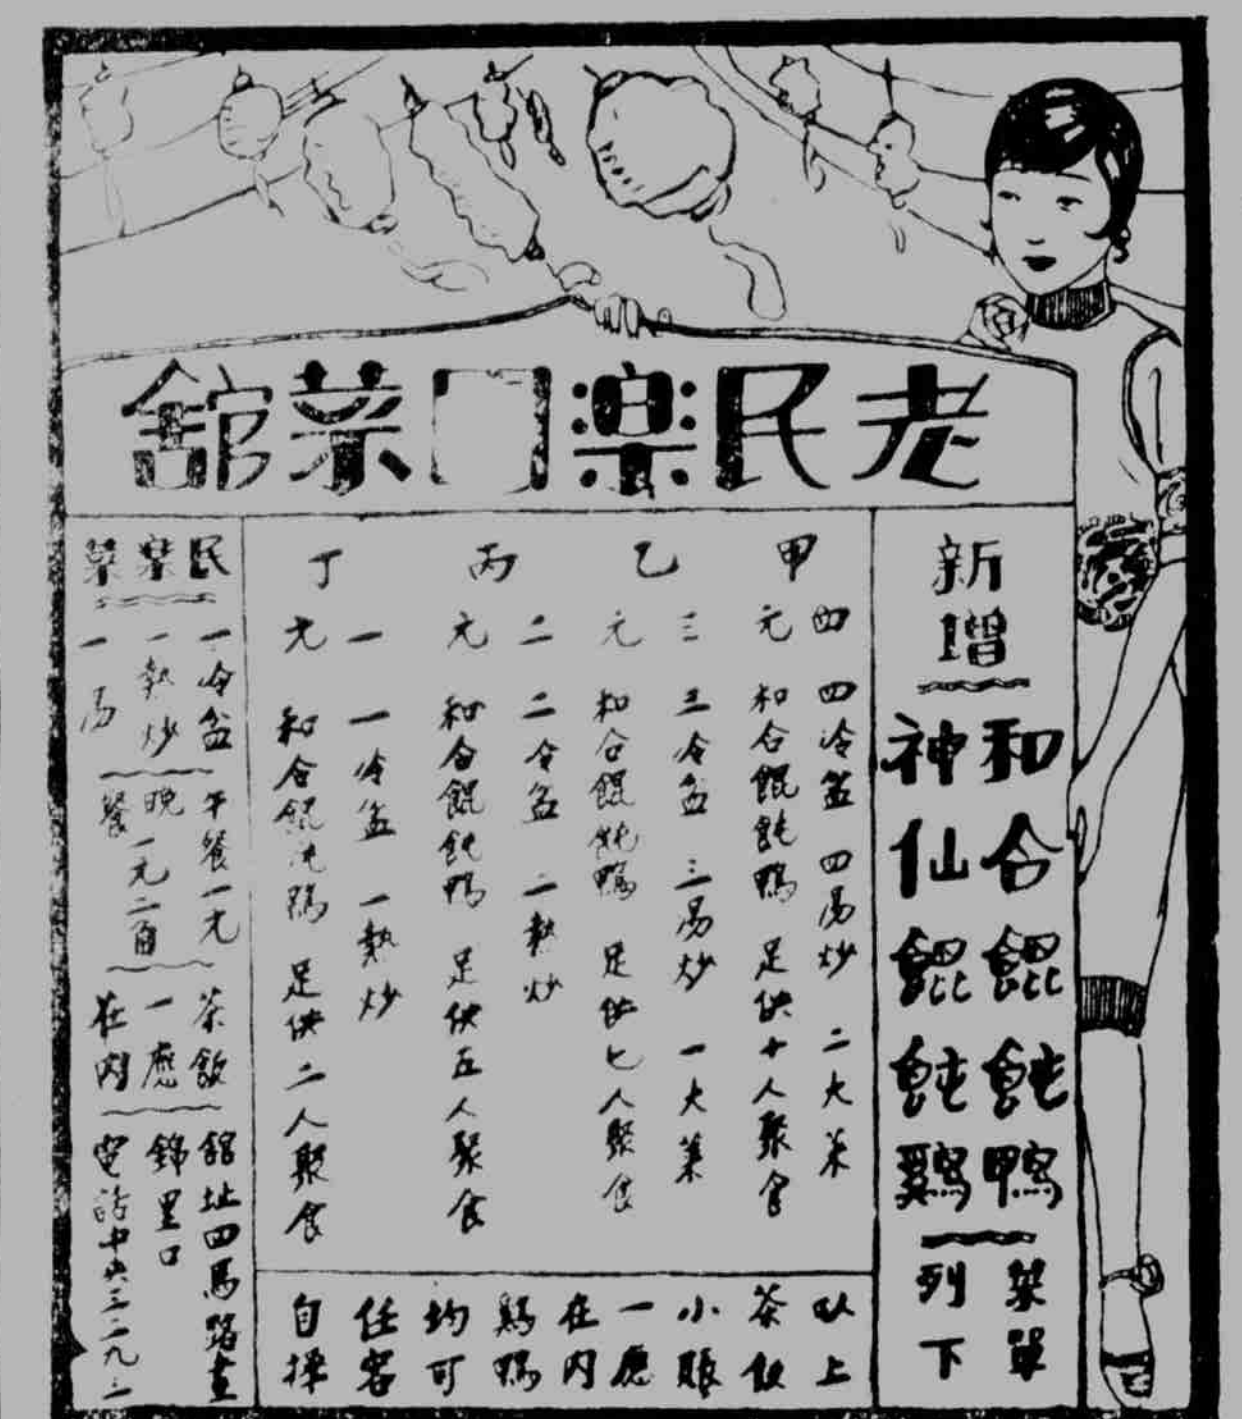 老民樂門菜館
新增
和合餛飩鴨
神仙餛飩鷄
菜單
列下
甲
四 四冷盆 四湯炒 二大菜
元 和合餛飩鴨 足供十人聚食
乙
三 三冷盆 三湯炒 一大菜
元 和合餛飩鴨 足供七人聚食
丙
二 二冷盆 二熱炒
元 和合餛飩鴨 足供五人聚食
丁
一 一冷盆 一熱炒
元 和合餛飩鴨 足供二人聚食
以上
茶飯
小賬
一應
在內
鷄鴨
均可
任客
自擇
民樂菜
一冷盆
一熱炒
一湯
午餐一元
晚一元二角
餐
茶飯
一應
在內
館址四馬路畫
錦里口
電話中央三一九二